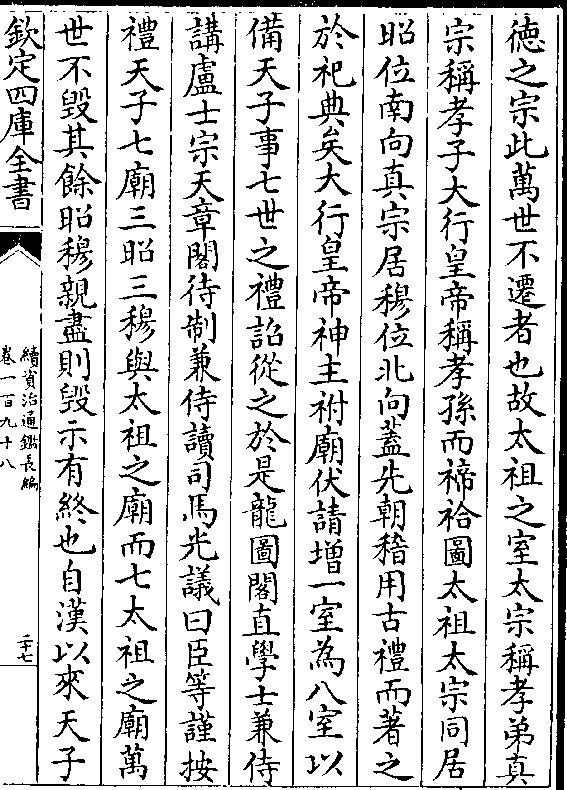 德之宗此萬世不遷者也故太祖之室太宗稱孝弟真
宗稱孝子大行皇帝稱孝孫而禘祫圖太祖太宗同居
昭位南向真宗居穆位北向蓋先朝稽用古禮而著之
於祀典矣大行皇帝神主祔廟伏請增一室為八室以
備天子事七世之禮詔從之於是龍圖閣直學士兼侍
講盧士宗天章閣待制兼侍讀司馬光議曰臣等謹按
禮天子七廟三昭三穆與太祖之廟而七太祖之廟萬
世不毀其餘昭穆親盡則毀示有終也自漢以來天子
欽定四庫全書
續資治通鑑長編
卷一百九十八
二十七